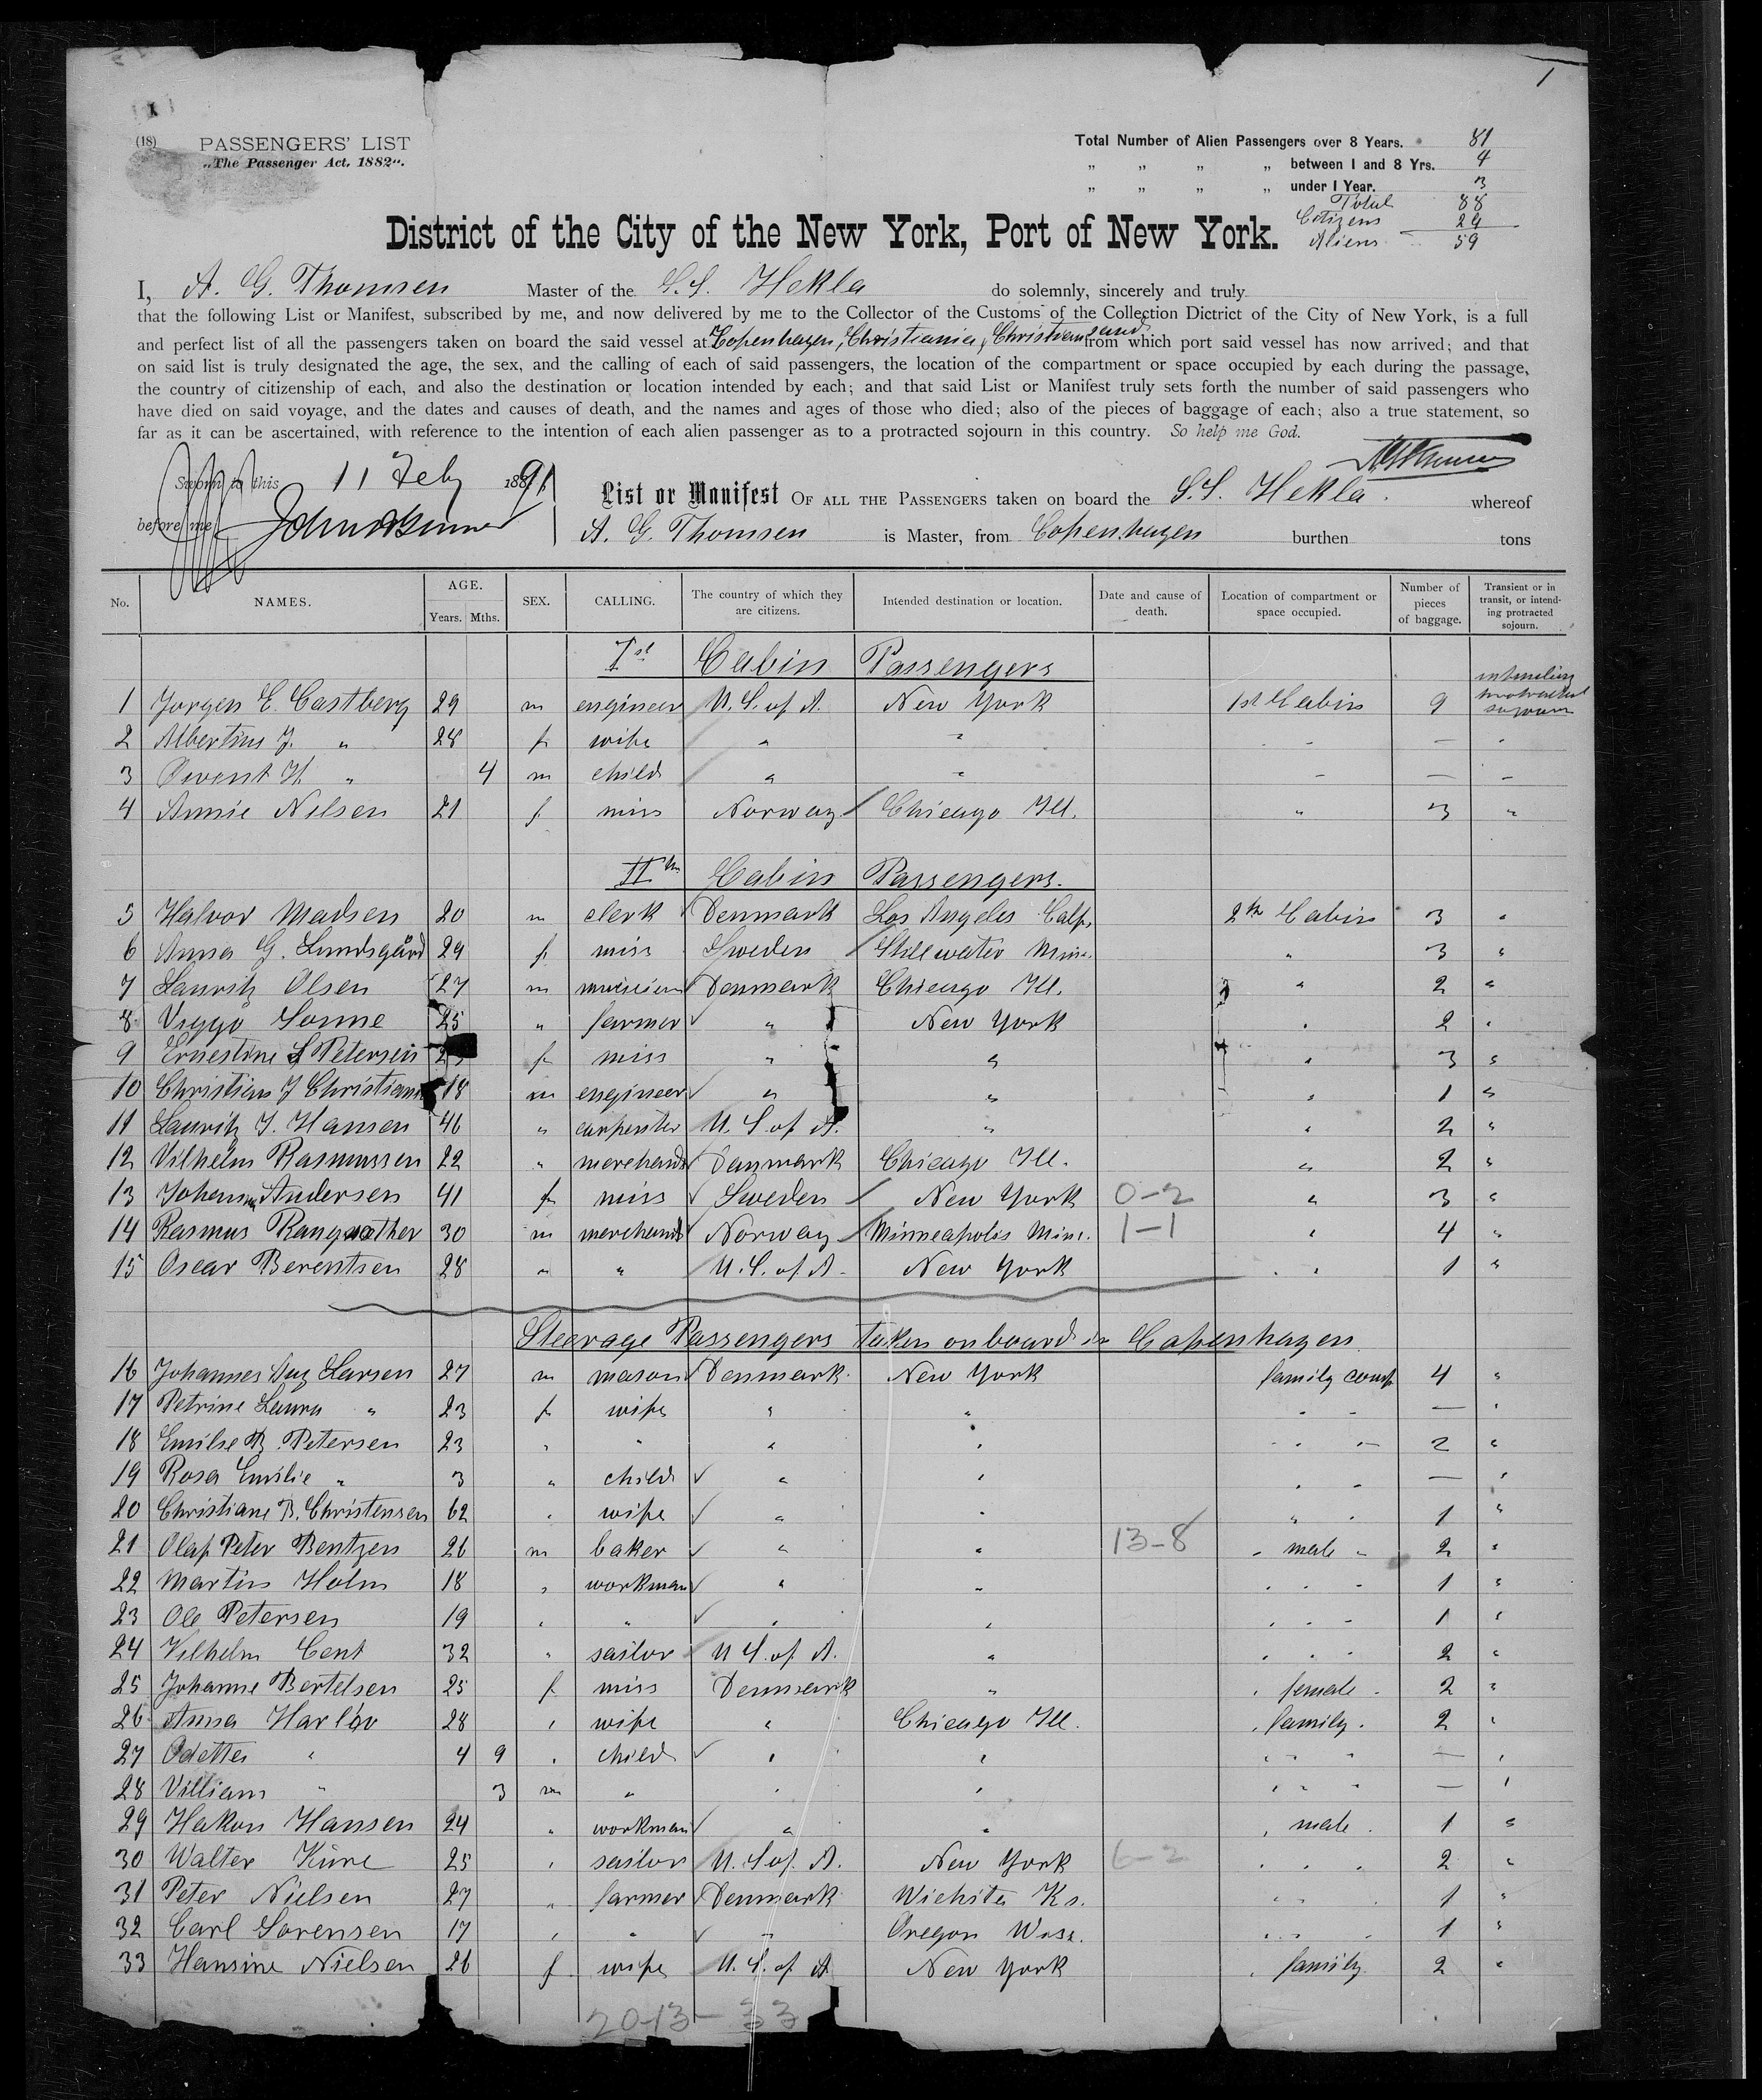 1
(18) PASSENGERS' LIST
„The Passenger Act, 1882".
Total Number of Alien Passengers over 8 Years. 81
„ „ „ „ between 1 and 8 Yrs. 4
„ „ „ „ under 1 Year. 3
Total 88
Citizens 29
Aliens 59
District of the City of the New York, Port of New York.
I, A. G. Thomsen Master of the S.S. Hekla do solemnly, sincerely and truly
that the following List or Manifest, subscribed by me, and now delivered by me to the Collector of the Customs of the Collection Dictrict of the City of New York, is a full
and perfect list of all the passengers taken on board the said vessel at Copenhagen, Christiania, Christiansand from which port said vessel has now arrived; and that
on said list is truly designated the age, the sex, and the calling of each of said passengers, the location of the compartment or space occupied by each during the passage,
the country of citizenship of each, and also the destination or location intended by each; and that said List or Manifest truly sets forth the number of said passengers who
have died on said voyage, and the dates and causes of death, and the names and ages of those who died; also of the pieces of baggage of each; also a true statement, so
far as it can be ascertained, with reference to the intention of each alien passenger as to a protracted sojourn in this country. So help me God.
Sworn to this 11 Feby 1891
before me
List or Manifest OF ALL THE PASSENGERS taken on board the S.S. Hekla. whereof
A. G. Thomsen is Master, from Copenhagen burthen tons
No. NAMES. AGE. Years. Mths. SEX. CALLING. The country of which they are citizens. Intended destination or location. Date and cause of death. Location of compartment or space occupied. Number of pieces of baggage. Transient or in transit, or intending protracted sojourn.
Ist Cabin Passengers
1 Jorgen E. Castberg 29 m engineer U.S. of A. New York 1st Cabin 9 intending protracted sojourn
2 Albertine J. " 28 f wife " " - - — "
3 H. " 4 m child " " - — -
4 Annie Nilsen 21 f miss Norway Chicago Ill. " 3 "
II Cabin Passengers.
5 Halvor Madsen 20 m clerk Denmark Los Angeles Calf. 2 Cabin 3 "
6 Anna G. Lundsgård 29 f miss Sweden Stillwater Minn. " 3 "
7 Lauritz Olsen 27 m musician Denmark Chicago Ill. " 2 "
8 Viggo Sonne 25 " farmer " New York " 2 "
9 Ernestine S Petersen f miss " " " 3 "
10 Christian J Christians 18 m engineer " " " 1 "
11 Lauritz J. Hansen 46 " carpenter U.S. of A. " " 2 "
12 Vilhelm Rasmussen 22 " merchand Denmark Chicago Ill. " 2 "
13 Johanna Andersen 41 f miss Sweden New York 0-2 " 3 "
14 Rasmus 30 m merchand Norway Minneapolis Minn. 1-1 " 4 "
15 Oscar Berentsen 28 " " U.S. of A. New York " 1 "
Steerage Passengers taken onboard in Copenhagen
16 Johannes Aug Larsen 27 m mason Denmark New York family comp 4 "
17 Petrine Laura " 23 f wife " " - - — "
18 Emilie B. Petersen 23 " " " " - - 2 "
19 Rosa Emilie " 3 " child " " - - — "
20 Christiane B. Christensen 62 " wife " " " " 1 "
21 Olaf Peter Bentzen 26 m baker " " 13-8 " male " 2 "
22 Martin Holm 18 " workman " " " " " 1 "
23 Ole Petersen 19 " " " " " " " 1 "
24 Vilhelm Cent 32 " sailor U.S. of A. " " " " 2 "
25 Johanne Bertelsen 25 f miss Denmark " " female " 2 "
26 Anna Harlöv 28 " wife " Chicago Ill. " family " 2 "
27 Odette " 4 9 " child " " " " " — "
28 Villiam " 3 m " " " " " " — "
29 Hakon Hansen 24 " workman " " " male " 1 "
30 Walter Kure 25 " sailor U.S. of A. New York 6-2 " " " 2 "
31 Peter Nielsen 27 " farmer Denmark Wichita Ks. " " " 1 "
32 Carl Sorensen 17 " " " Oregon " " " 1 "
33 Hansine Nielsen 26 f wife U.S. of A New York " family 2 "
2013 - 33